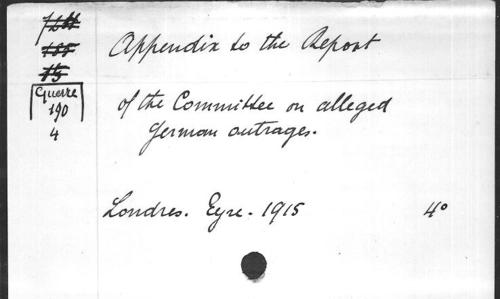 Appendix to the Report
Guerre
190
4
of the Committee on alleged
German outrages.
Londres. Eyre. 1915 4°